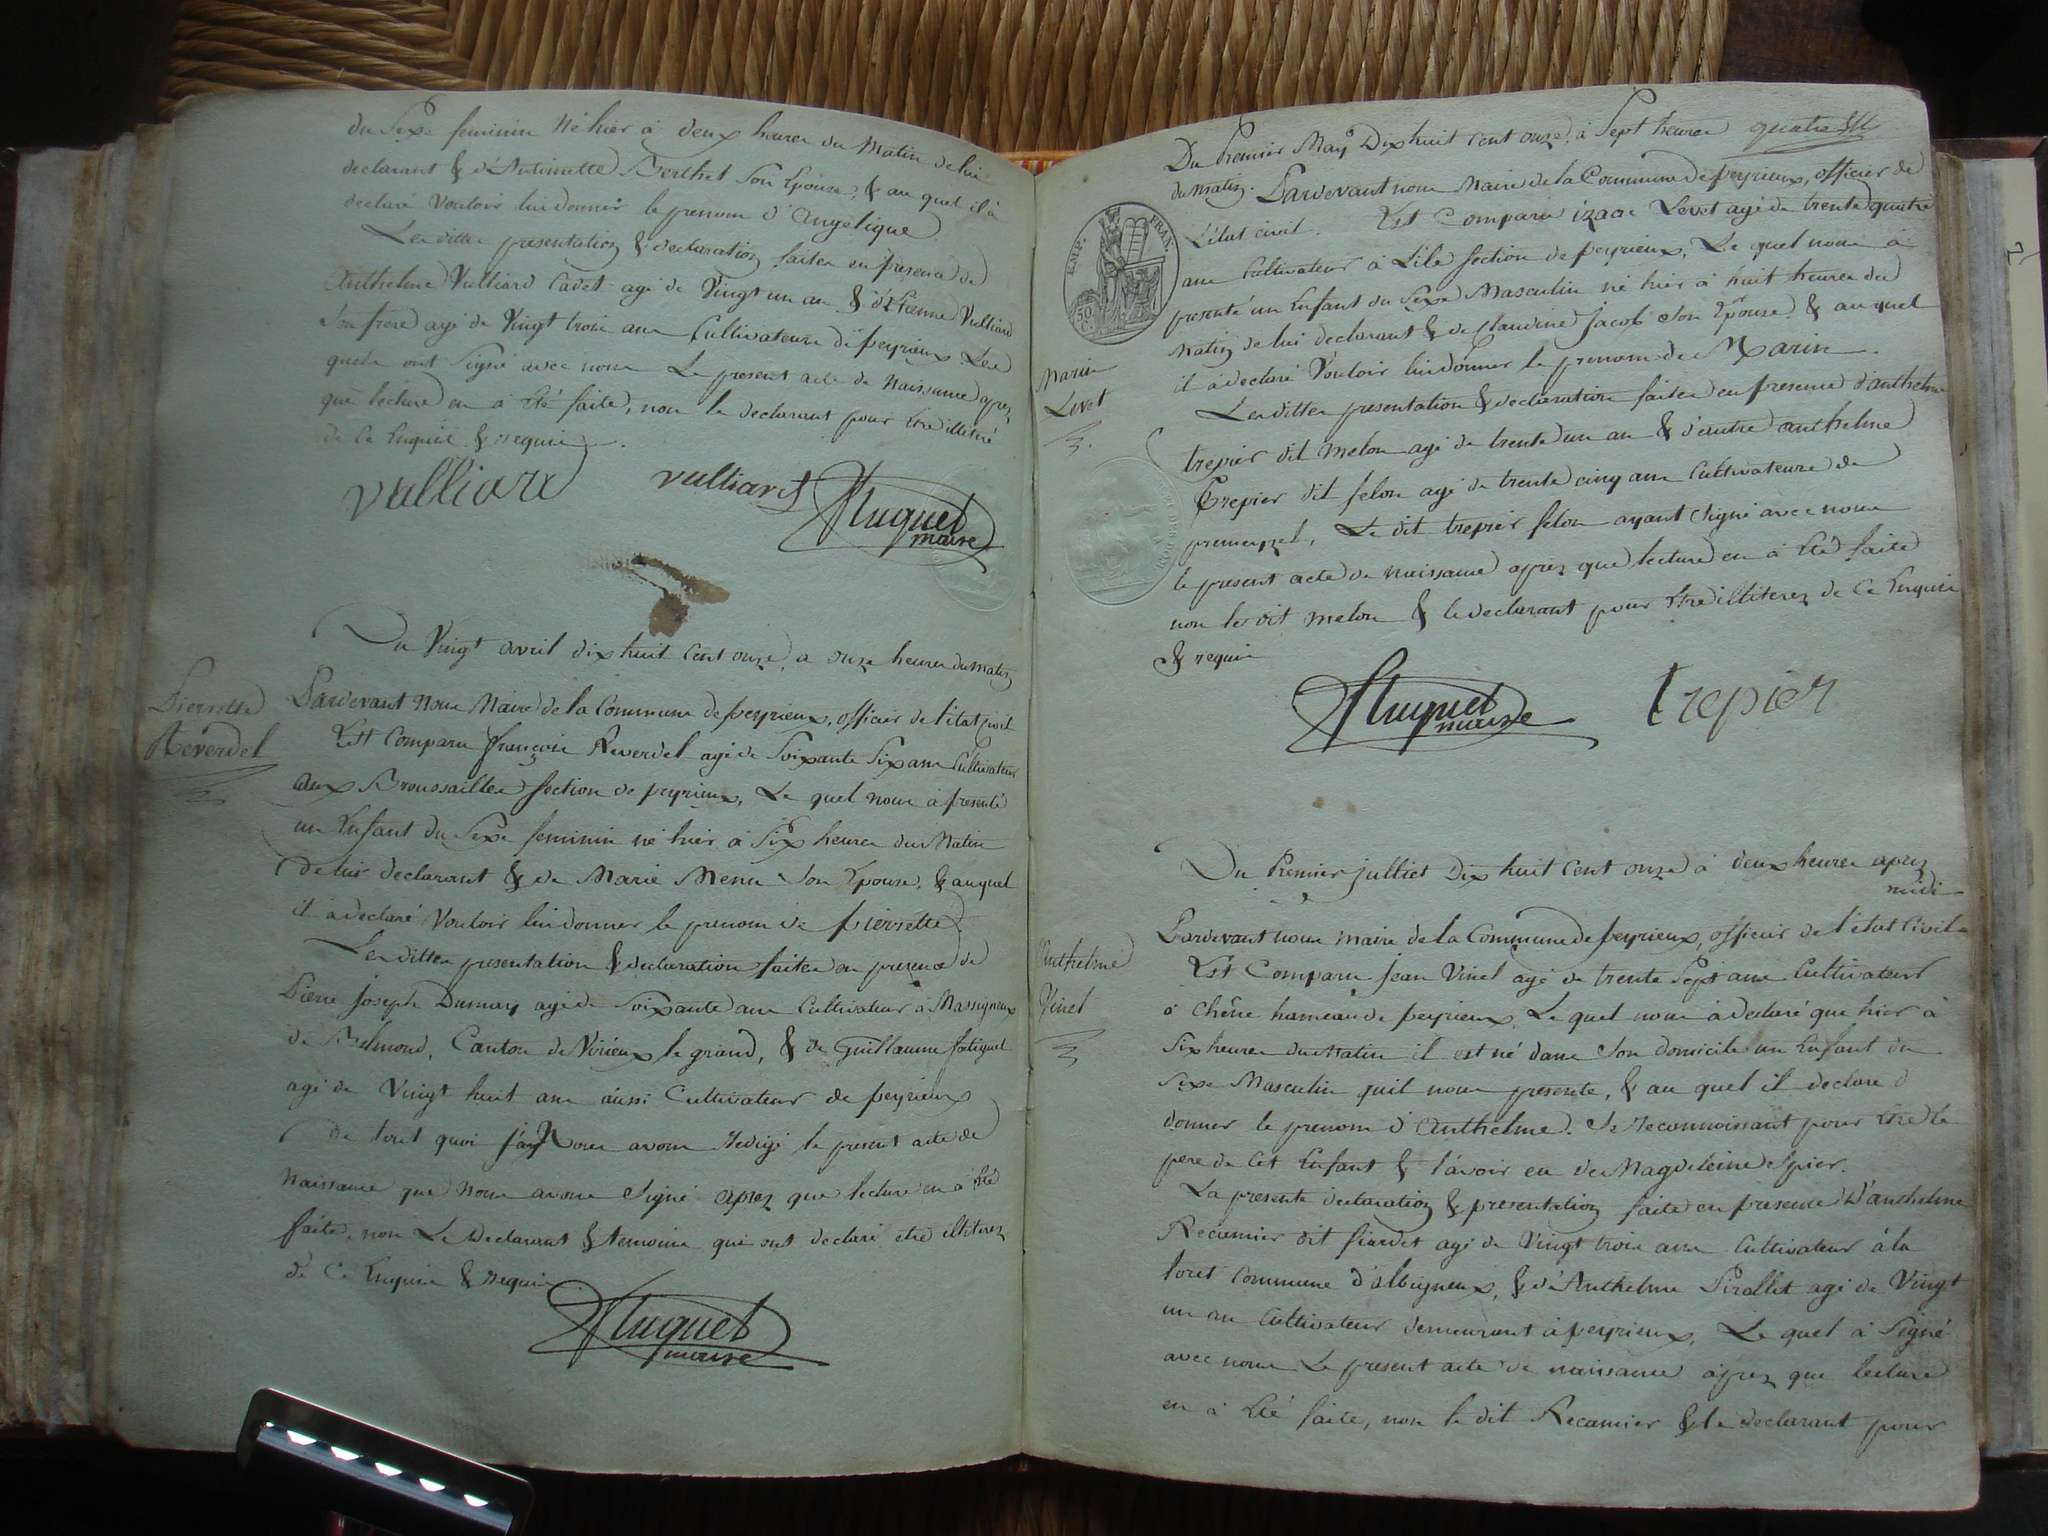 du Sexe feminin né hier à deux heures du Matin de lui
declarant & d'Antoinette Berthet Son Epouse, & au quel il à
declaré Vouloir lui donner le prenom d'Angelique.
Les dittes presentation & declaration faites en presence de
Anthelme Vulliard Cadet agé de Vingt un an & d'Etienne Vulliard
Son frere agé de Vingt trois ans Cultivateurs de peyrieux. Les
quels ont Signé avec nous Le present acte de Naissance aprez
que lecture en à Eté faite, non le declarant pour Etre illiteré
de Ce Enquis & requis.
Vulliard
Vulliard
Huguet
maire
Du Vingt avril dix huit Cent onze, a onze heures du matin
Pierrette
Reverdel
Pardevant Nous Maire de la Commune de peyrieux, officier de l'état civil
Est Comparu françois Reverdel agé de Soixante Six ans Cultivateur
aux Broussailles Section de peyrieux, Le quel nous à presenté
un Enfant du Sexe feminin né hier à Six heures du Matin
de lui declarant & de Marie Menu Son Epouse, & auquel
il à declaré Vouloir lui donner le prenom de pierrette
Les dittes presentation & declaration faites en presence de
Pierre Joseph Dumay agé de Soixante ans Cultivateur à Massigneux
de Belmond, Canton de Virieux le grand, & de Guillaume
agé de Vingt huit ans aussi Cultivateur de peyrieux
De tout quoi Nous avons redigé le present acte de
Naissance que Nous avons Signé aprez que lecture en à été
faite, non Le Declarant & temoins qui ont declaré etre illiterez
de Ce Enquis & requis
Huguet
maire
Du Premier May Dix huit Cent onze, à Sept heures
quatre
du matin. Pardevant nous Maire de la Commune de peyrieux, officier de
L'état civil. Est Comparu izaac Levet agé de trente quatre
ans Cultivateur à L'ile Section de peyrieux, Le quel nous à
presenté un Enfant du Sexe Masculin né hier à huit heures du
Matin de lui declarant & de Claudine Jacob Son Epouse, & au quel
il à declaré Vouloir lui donner le prenom de Marin.
EMP. FRAN.
50 C.
Marin
Levet
Les dittes presentation & declaration faites en presence d'anthelme
trepier dit melon agé de trente un an & d'autre anthelme
Trepier dit felon agé de trente cinq ans Cultivateurs de
premeyzel, Le dit trepier felon ayant Signé avec nous
le present acte de naissance aprez que lecture en à Eté faite
non le dit melon & le declarant pour Etre illiterez de Ce Enquis
& requis
Huguet
maire
trepier
Du Premier julliet Dix huit Cent onze à deux heures aprez
midi
Anthelme
Vinet
Pardevant nous maire de la Commune de peyrieux, officier de l'état Civil
Est Comparu Jean Vinet agé de trente Sept ans Cultivateur
à Chêne hameau de peyrieux. Le quel nous à declaré que hier à
Six heures du Matin il est né dans Son domicile un Enfant du
Sexe Masculin quil nous presente, & au quel il declare
donner le prenom d'Anthelme. Se reconnoissant pour Etre le
pere de Cet Enfant & l'avoir eu de Magdeleine Spier.
La presente declaration & presentation faite en presence D'anthelme
Recamier dit fiardet agé de Vingt trois ans Cultivateur à la
foret Commune d'albigneux, & d'Anthelme Pirollet agé de Vingt
un an Cultivateur demeurant à peyrieux, Le quel à Signé
avec nous Le present acte de naissance aprez que lecture
en à Eté faite, non le dit Recamier & le declarant pour